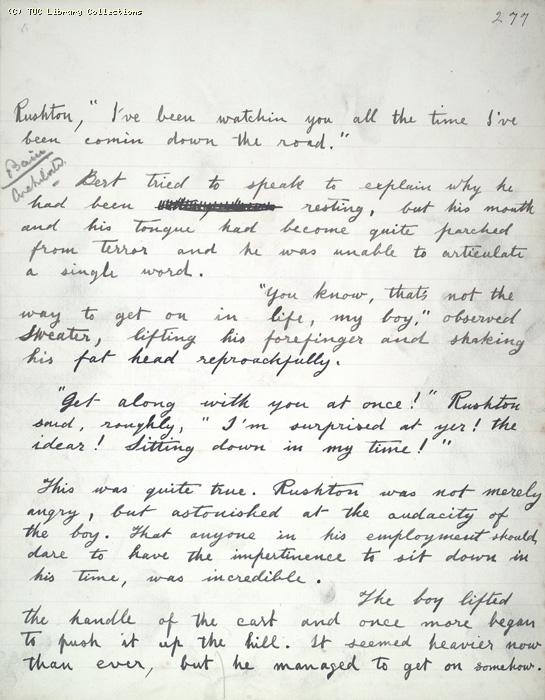 (C) TUC Library Collections
277
Rushton, "I've been watchin you all the time I've
been comin down the road."
Bert tried to speak to explain why he
had been resting, but his mouth
and his tongue had become quite parched
from terror and he was unable to articulate
a single word.
"You know, thats not the
way to get on in life, my boy," observed
Sweater, lifting his forefinger and shaking
his fat head reproachfully.
"Get along with you at once!" Rushton
said, roughly, "I'm surprised at yer! the
idear! Sitting down in my time!"
This was quite true. Rushton was not merely
angry, but astonished at the audacity of
the boy. That anyone in his employment should
dare to have the impertinence to sit down in
his time, was incredible.
The boy lifted
the handle of the cart and once more began
to push it up the hill. It seemed heavier now
than ever, but he managed to get on somehow.